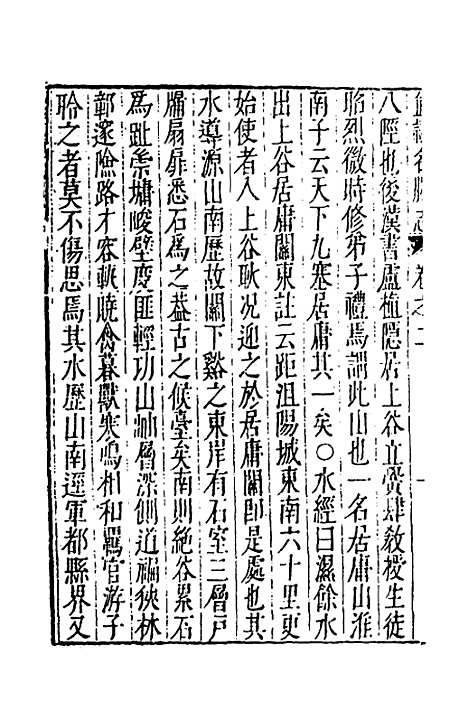 卷之二
八陘也後漢書盧植隱居上谷立黌肆教授生徒
昭烈微時修弟子禮焉謂此山也一名居庸山淮
南子云天下九塞居庸其一矣○水經曰濕餘水
出上谷居庸關東註云距沮陽城東南六十里更
始使者入上谷耿况迎之於居庸關即是處也其
水導源山南歷故關下谿之東岸有石室三層戸
牖扇扉悉石為之葢古之候臺矣南則絶谷累石
為趾崇墉峻壁度匪輕功山岫層深側道褊狹林
鄣邃險路才容軌曉禽暮獸寒鳴相和羈官游子
聆之者莫不傷思焉其水歷山南逕軍都縣界又